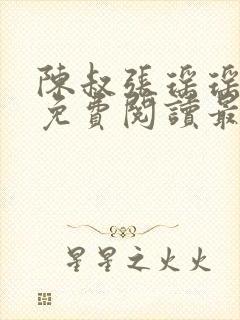 陳叔張瑶瑶
免費閱讀最
星星之火火